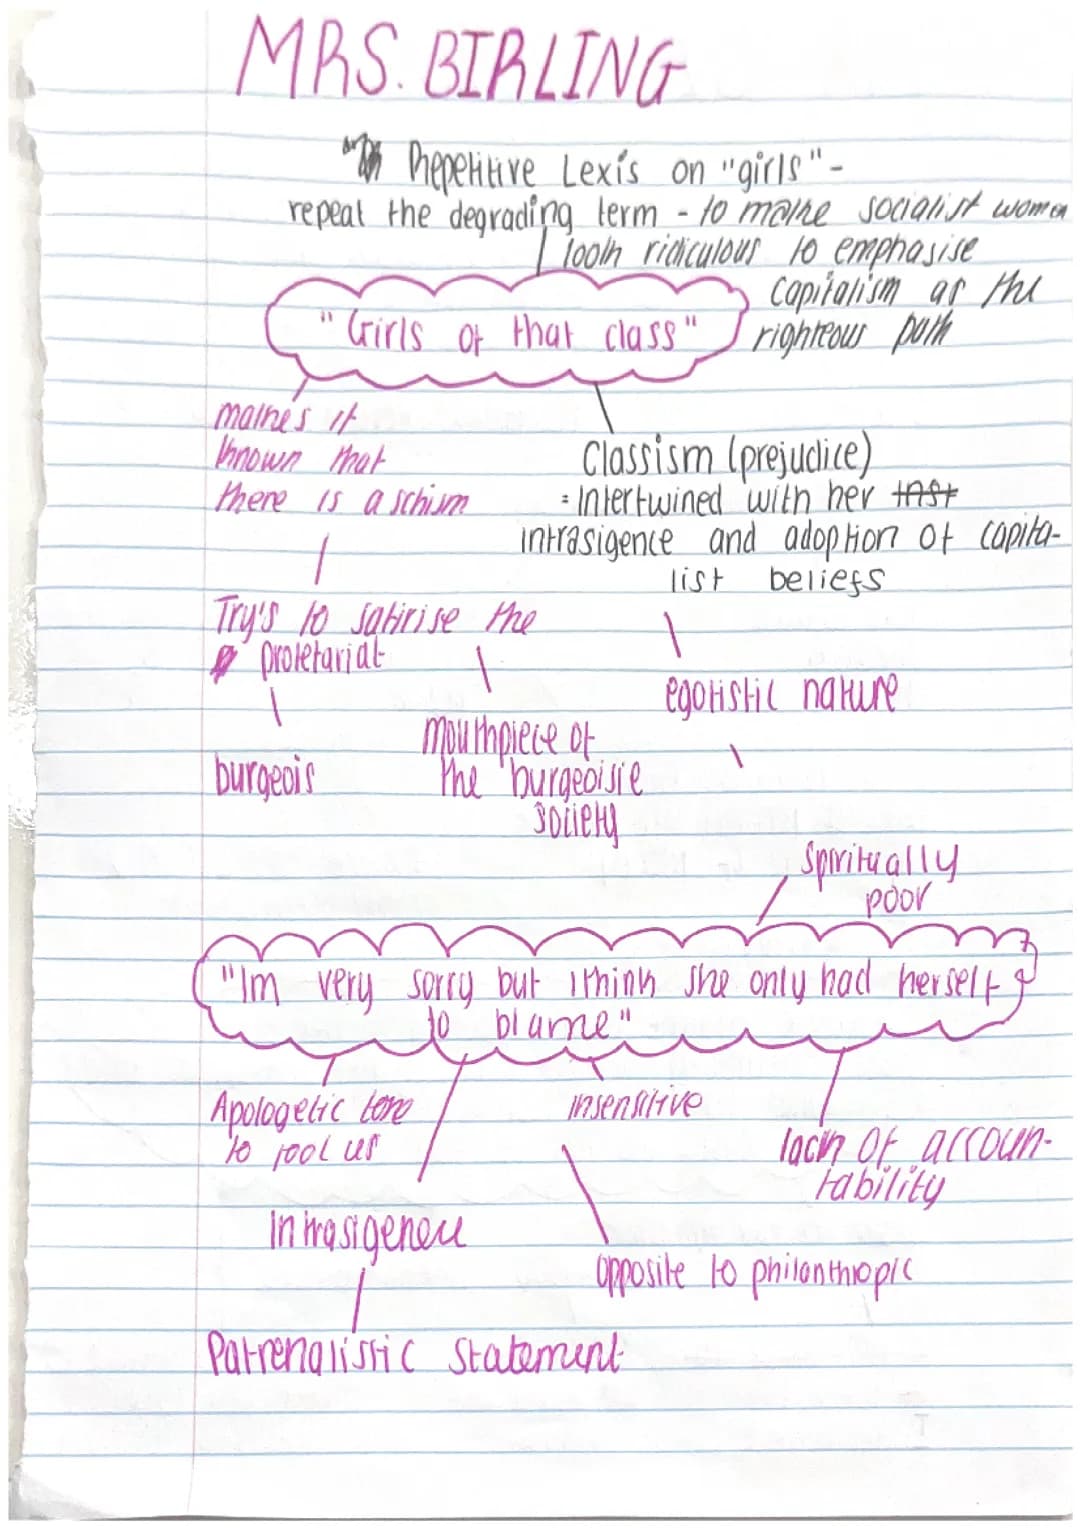 MRS. BIRLING
Repetitive Lexis on "girls" -
repeat the degrading term - to make socialist women
look ridiculous to emphasise
capitalism as the
righteous path
"Girls of that class"
makes it
known that
there is a schism
Classism (prejudice)
= Intertwined with her
intrasigence and adoption of capita-
list beliefs
Try's to satirise the
proletariat
egotistic nature
mouthpiece of
the burgeoisie
society
burgeois
Spiritually
poor
"Im very sorry but I think she only had herself
to blame"
Apologetic tone
to fool us
insensitive
lack of accoun-
tability
Intrasigence
opposite to philanthropic
Patrenalistic Statement